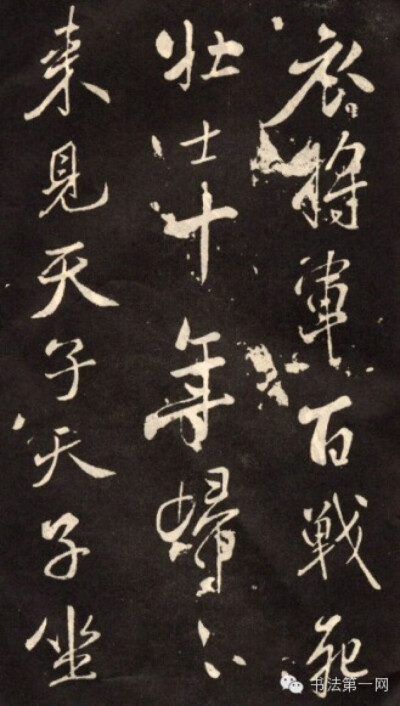 衣将軍百戰死
壮士十年歸〻
来見天子天子坐
书法第一网